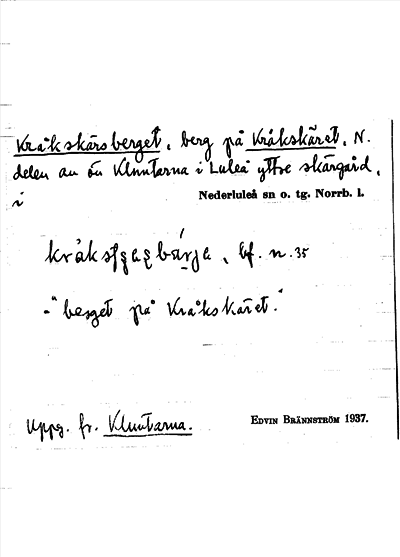 Kråkskärsberget, berg på Kråkskäret, N.
delen av ön Kluntarna i Luleå yttre skärgård,
i
Nederluleå sn o. tg. Norrb. l.
bf. n. 35
-"berget på Kråkskäret."
Uppg. fr. Kluntarna.
EDVIN BRÄNNSTRÖM 1937.